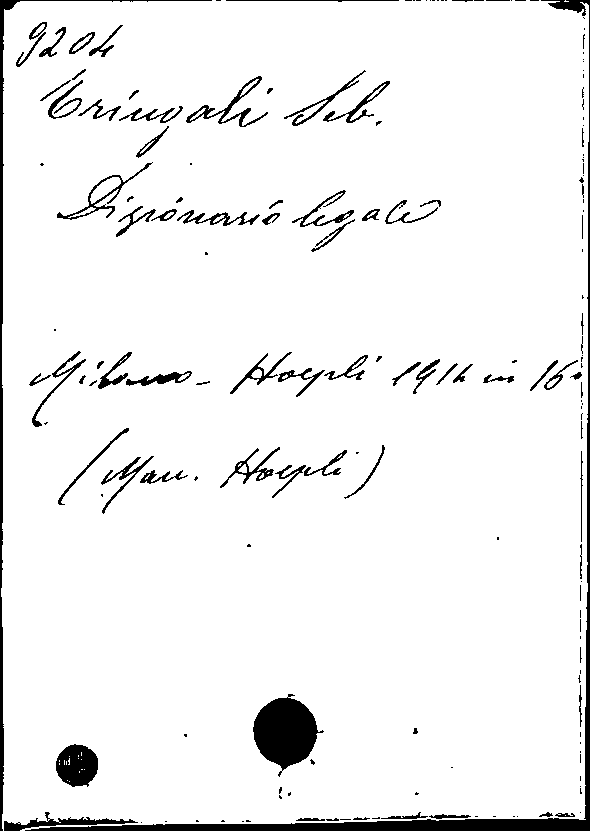 9204
Tringali Seb.
Dizionario legale
Milano - Hoepli 1914 in 16°
(Man. Hoepli)